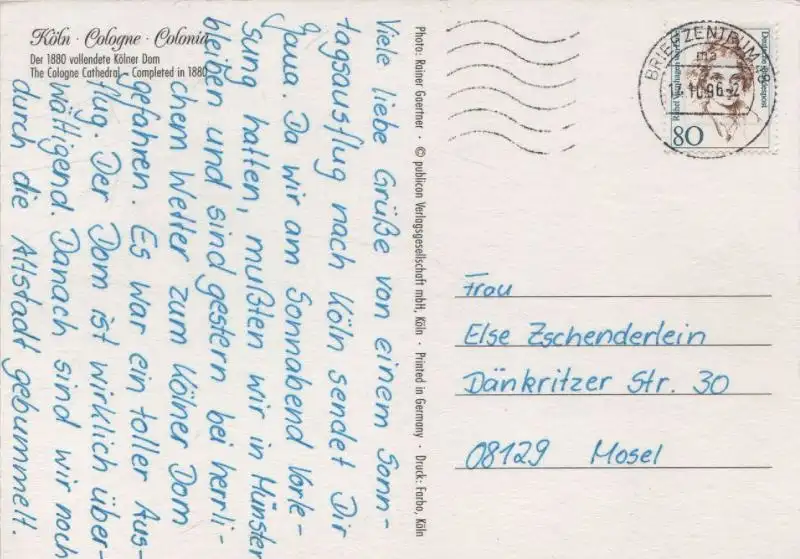 Köln · Cologne · Colonia
Der 1880 vollendete Kölner Dom
The Cologne Cathedral – Completed in 1880
Viele liebe Grüße von einem Sonn-
tagsausflug nach Köln sendet Dir
Jana. Da wir am Sonnabend Vorle-
sung hatten, mußten wir in Münster
bleiben und sind gestern bei herrli-
chem Wetter zum Kölner Dom
gefahren. Es war ein toller Aus-
flug. Der Dom ist wirklich über-
wältigend. Danach sind wir noch
durch die Altstadt gebummelt.
Photo: Rainer Gaertner · © publicon Verlagsgesellschaft mbH, Köln · Printed in Germany · Druck: Farbo, Köln
BRIEFZENTRUM 48
10.96
Deutsche Bundespost
80
Frau
Else Zschenderlein
Dänkritzer Str. 30
08129 Mosel